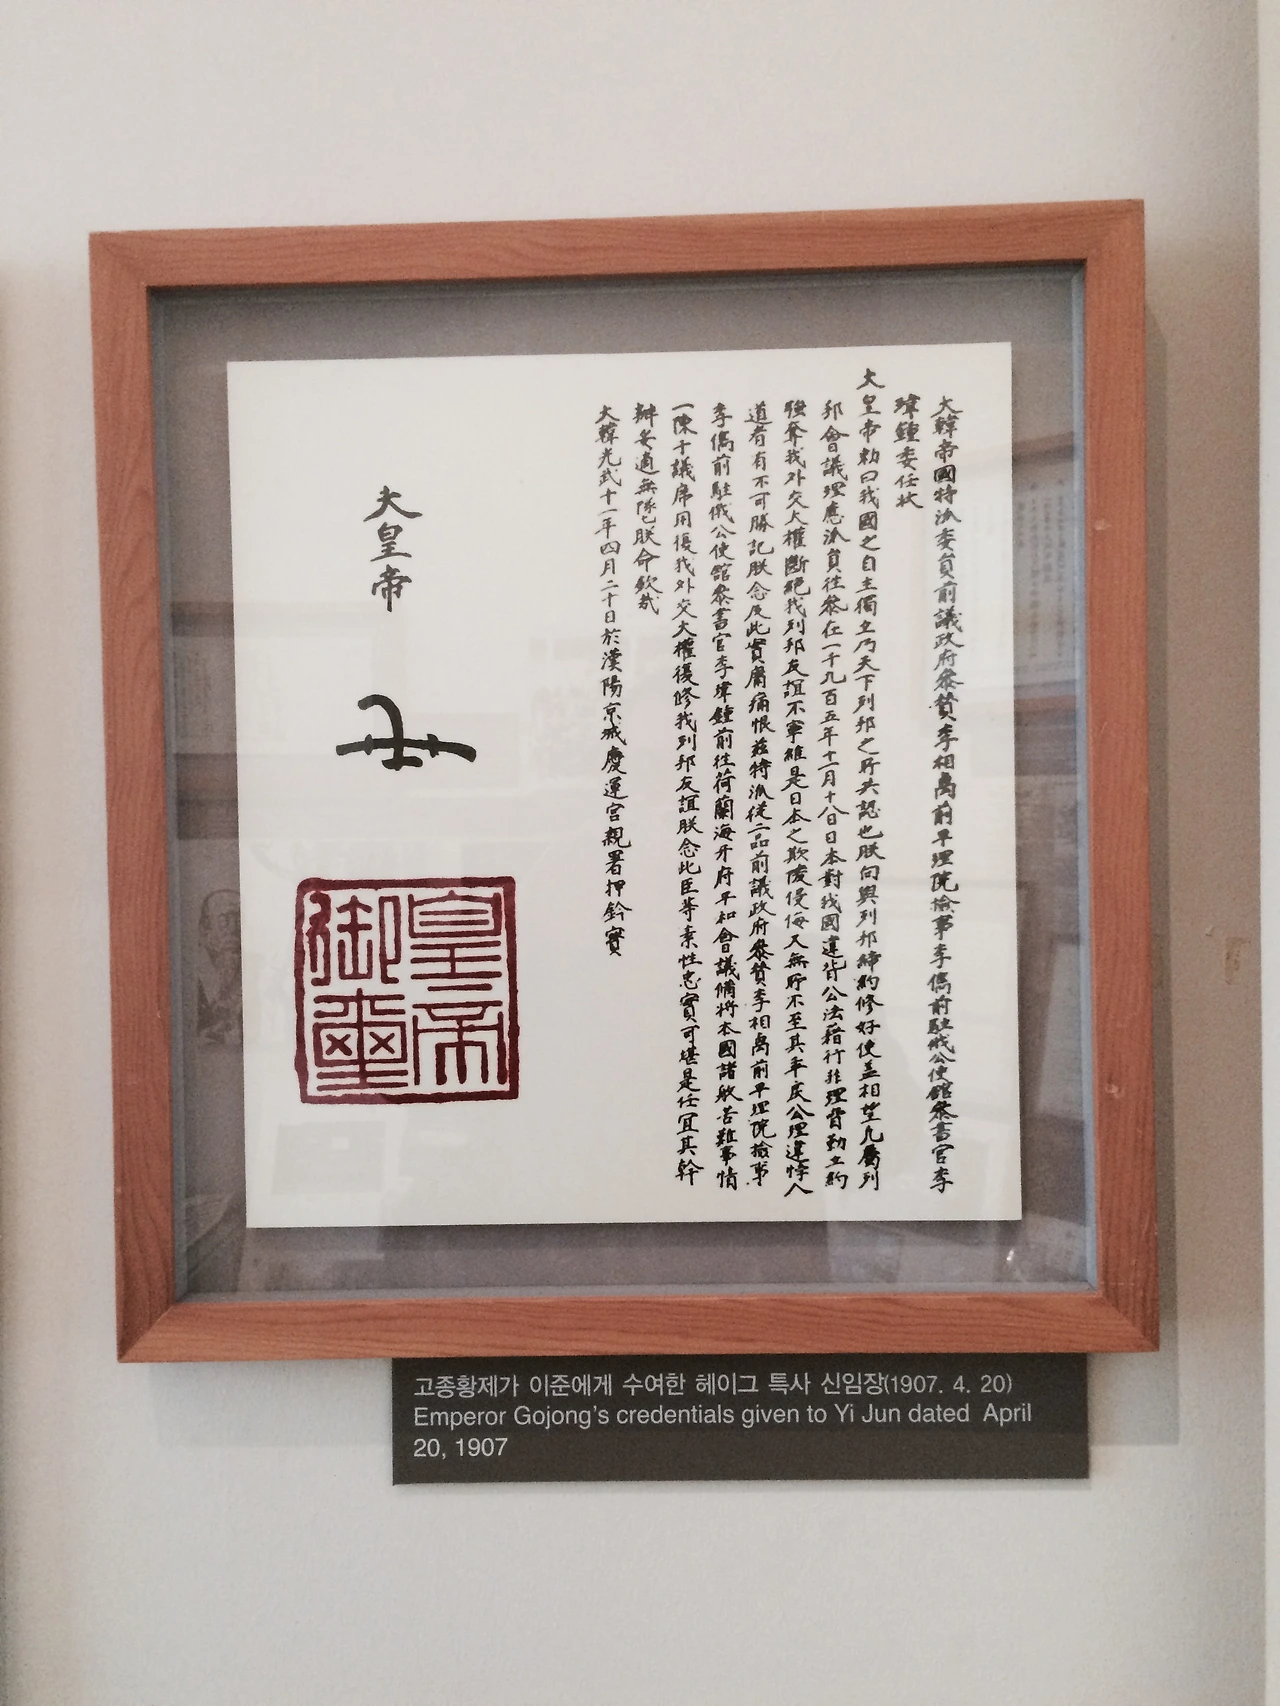 大韓帝國特派委員前議政府參贊李相卨前平理院檢事李儁前駐俄公使館參書官李
瑋鍾委任狀
大皇帝勅曰我國之自主獨立乃天下列邦之所共認也朕向與列邦締約修好使盖相望凡屬列
邦會議理應派員往參在一千九百五年十一月十八日日本對我國違背公法藉行非理脅勒立約
強奪我外交大權斷絕我列邦友誼不寧維是日本之欺凌侵侮又無所不至其乖戾公理違悖人
道者有不可勝記朕念及此實庸痛恨茲特派從二品前議政府參贊李相卨前平理院檢事
李儁前駐俄公使館參書官李瑋鍾前往荷蘭海牙府平和會議備將本國諸般苦難事情
一陳于議席用復我外交大權復修我列邦友誼朕念此臣等素性忠實可堪是任宜其幹
辦妥適無墜朕命欽哉
大韓光武十一年四月二十日於漢陽京城慶運宮親署押鈐寶
大皇帝
皇帝
御璽
고종황제가 이준에게 수여한 헤이그 특사 신임장(1907. 4. 20)
Emperor Gojong's credentials given to Yi Jun dated April
20, 1907